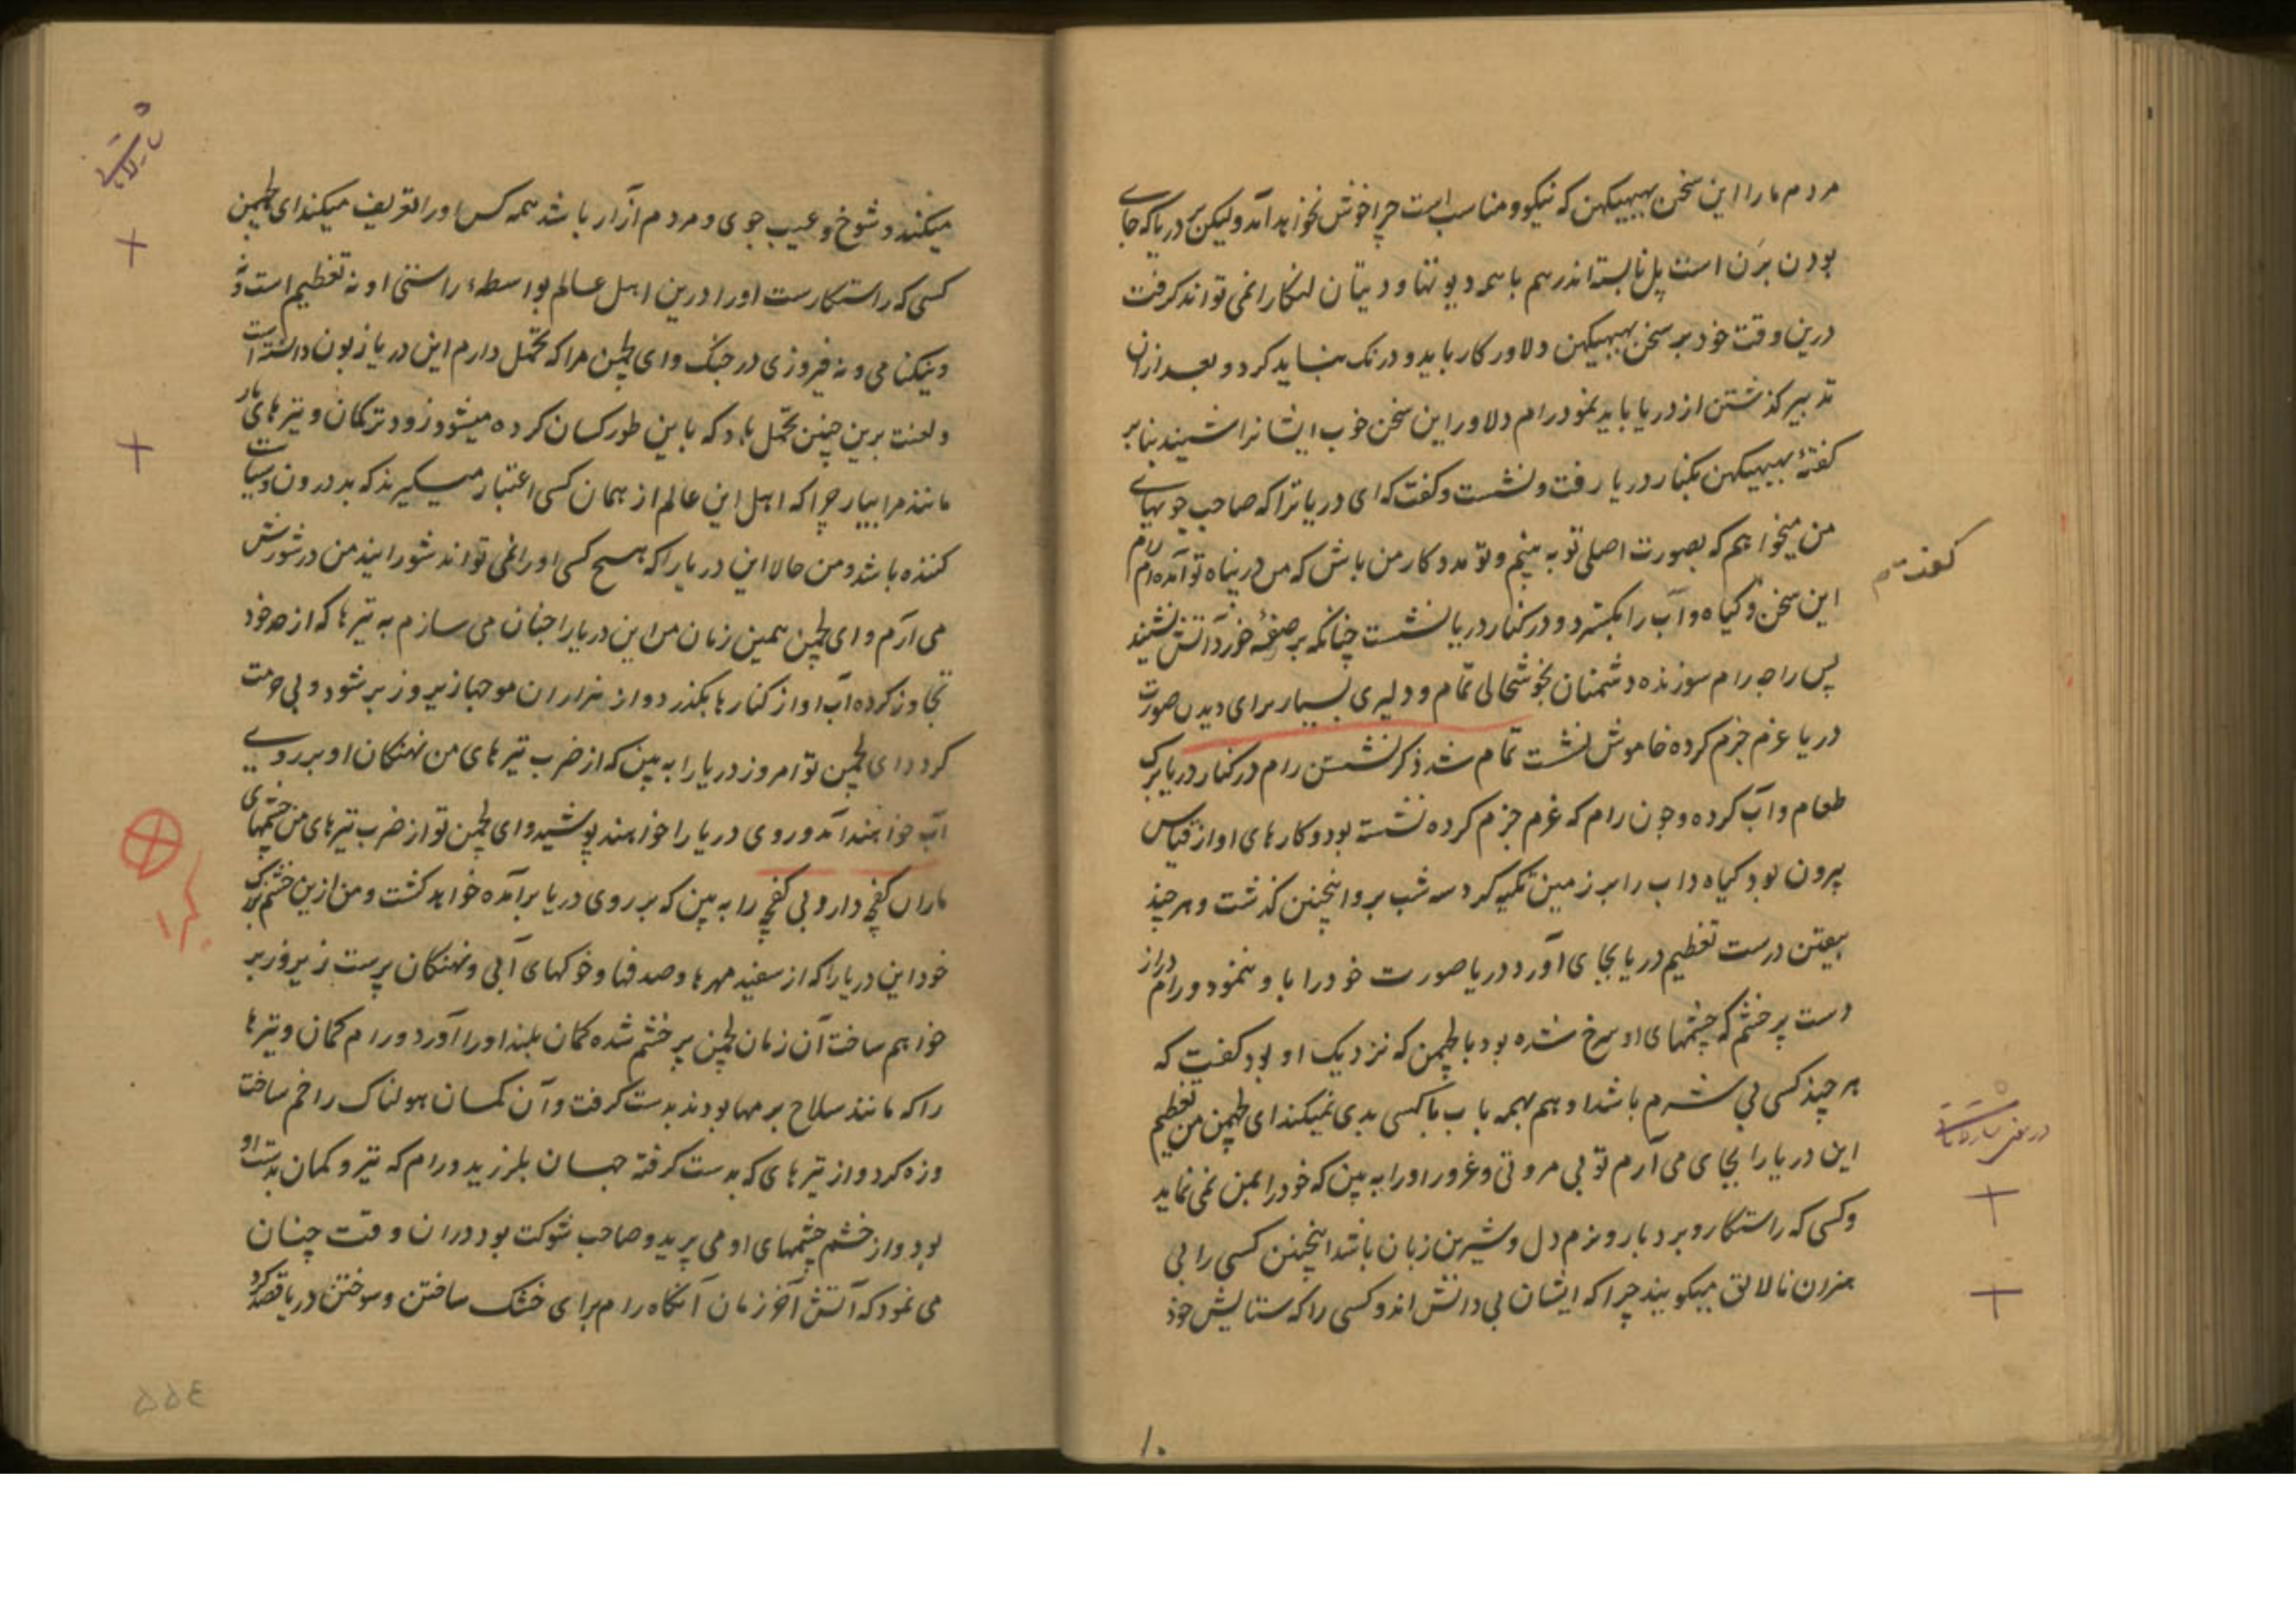 مردم ما را این سخن بهبیکهن که نیکو و مناسب است چرا خوش نخواهد آمد و لیکن بر دریا که جای
بودن برن است پل نابسته اندر هم با همه دیوتها و دیتان لنکا را نمی تواند گرفت
درین وقت خود بر سخن بهبیکهن دلاور کار باید و درنک نباید کرد و بعد ازان
تدبیر گذشتن از دریا باید نمود رام دلاور این سخن خوب ایشانرا شنیده بنابر
گفتهٔ بهبیکهن بکنار دریا رفت و نشست و گفت که ای دریا ترا که صاحب جویهای
من میخواهم که بصورت اصلی تو به بینم و تو مددکار من باش که من در پناه تو آمده ام رام
این سخن و گیاه و آب را بگسترد و در کنار دریا نشست چنانکه بر صفهٔ خورد آتش نشیند
پس راجه رام سوزنده دشمنان بخوشحالی تمام و دلیری بسیار برای دیدن صورت
دریا عزم جزم کرده خاموش نشست تمام شد ذکر نشستن رام در کنار دریا ترک
طعام و آب کرده و چون رام که عزم جزم کرده نشسته بود و کارهای او از قیاس
بیرون بود گیاه داب را بر زمین تکیه کرد سه شب برو اینچنین گذشت و هر چند
بیقین درست تعظیم دریا بجای آورد دریا صورت خود را باو ننمود و رام دراز
دست پر خشم که چشمهای او سرخ شده بود با لچمن که نزدیک او بود گفت که
هر چند کسی بی شرم باشد او هم بهمه باب با کسی بدی نمیکند ای لچمن من تعظیم
این دریا را بجای می آرم تو بی مروتی و غرور او را به بین که خود را بمن نمی نماید
و کسی که راستکار و بردبار و نرم دل و شیرین زبان باشد اینچنین کسی را بی
هنران نالایق میگویند چرا که ایشان بی دانش اند و کسی را که ستایش خود
گفت
۱۰
میکند و شوخ و عیب جوی و مردم آزار باشد همه کس او را تعریف میکند ای لچمن
کسی که راستکارست او را درین اهل عالم بواسطهٔ راستی او نه تعظیم است و نه
و نیکنامی و نه فیروزی در جنگ و ای لچمن مرا که تحمل دارم این دریا زبون دانسته است
و لعنت برین چنین تحمل باد که باین طور کسان کرده میشود زود تر کمان و تیرهای مار
مانند مرا بیار چرا که اهل این عالم از همان کسی اعتبار میگیرند که بد درون و سیاست
کننده باشد و من حالا این دریا را که هیچ کسی او را نمی تواند شورانید من در شورش
می آرم و ای لچمن همین زمان من این دریا را چنان می سازم به تیرها که از حد خود
تجاوز کرده آب او از کنارها بگذرد و از هزاران موجها زیر و زبر شود و بی حرمت
گردد ای لچمن تو امروز دریا را به بین که از ضرب تیرهای من نهنگان او بر روی
آب خواهند آمد و روی دریا را خواهند پوشید و ای لچمن تو از ضرب تیرهای من جثهای
ماران کفچه دار و بی کفچه را به بین که بر روی دریا برآمده خواهد گشت و من ازین خشم بزرگ
خود این دریا را که از سفید مهرها و صدفها و خوکهای آبی و نهنگان پرست زیر و زبر
خواهم ساخت آن زمان لچمن پر خشم شده کمان بلند او را آورد و رام کمان و تیرها
را که مانند سلاح برمها بودند بدست گرفت و آن کمان هولناک را خم ساخت
و زه کرد و از تیرهای که بدست گرفته جهان بلرزید و رام که تیر و کمان بدست او
بود و از خشم چشمهای او می پرید و صاحب شوکت بود دران وقت چنان
می نمود که آتش آخر زمان آنگاه رام برای خشک ساختن و سوختن دریا قصد کرد
۵۵۴